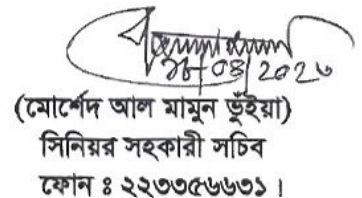 (মোর্শেদ আল মামুন ভুঁইয়া)
সিনিয়র সহকারী সচিব
ফোন ঃ ২২৩৩৫৬৬৩১।